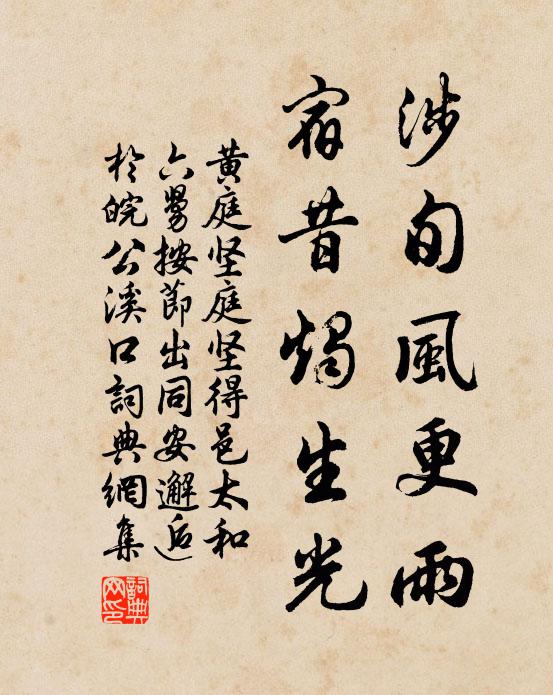 涉旬風更雨
宿昔燭生光
黄庭坚庭坚得邑太和
六舅按節出同安邂逅
於皖公溪口詞典網集
詞典網印